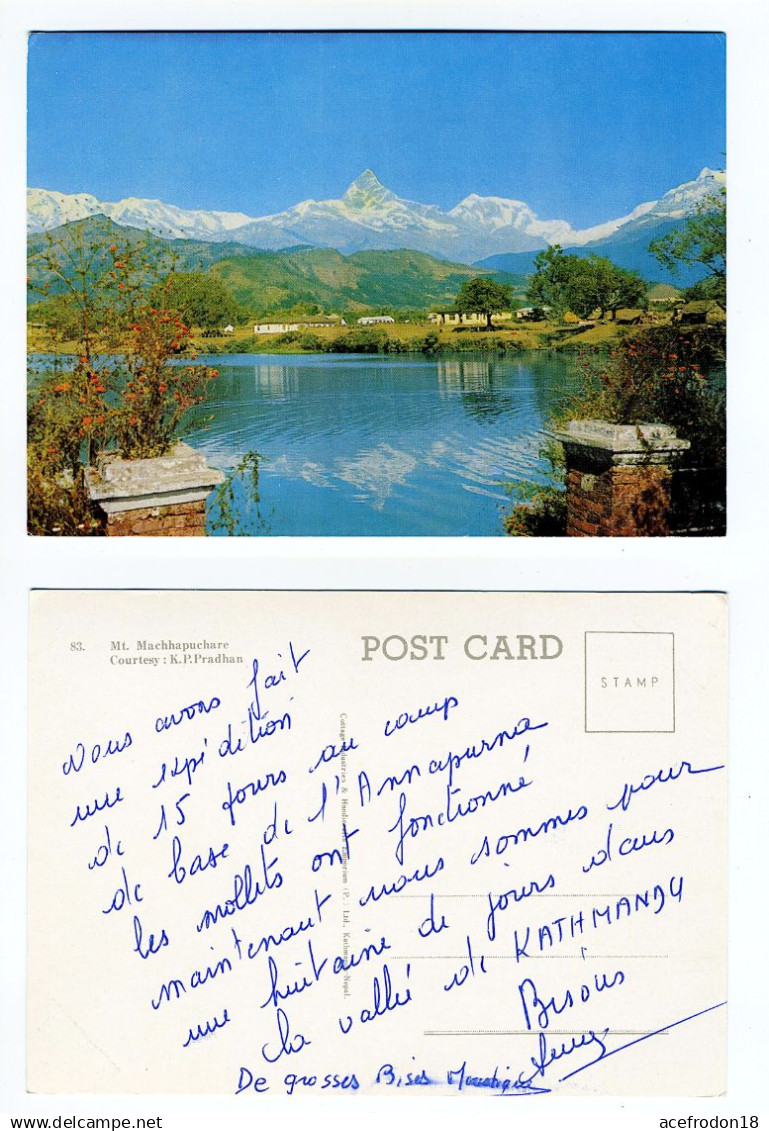 83. Mt. Machhapuchare
Courtesy : K.P.Pradhan
POST CARD
STAMP
Cottage Industries & Handicrafts Emporium (P.) Ltd., Kathmandu-Nepal.
Nous avons fait
une expédition
de 15 jours au camp
de base de l'Annapurna
les mollets ont fonctionné
maintenant nous sommes pour
une huitaine de jours dans
la vallée de KATHMANDU
Bisous
De grosses Bises
acefrodon18
delcampe.net